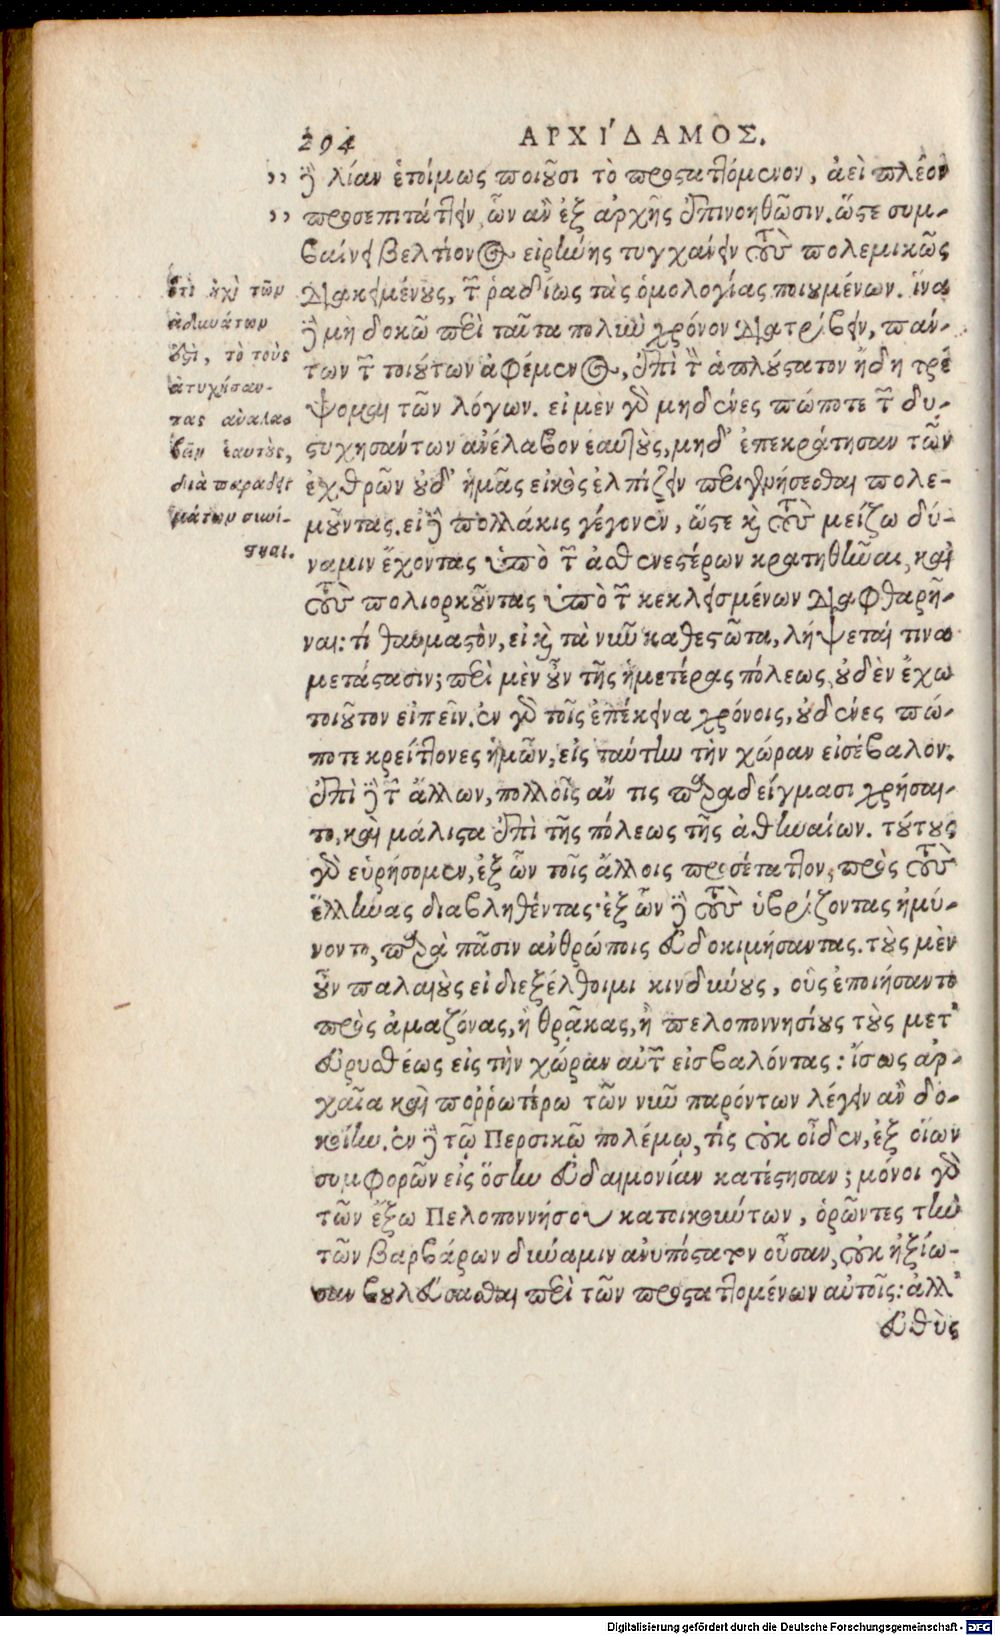 294 ΑΡΧΙ΄ΔΑΜΟΣ.
,, δὲ λίαν ἑτοίμως ποιοῦσι τὸ προσταττόμενον, ἀεὶ πλέον
,, προσεπιτάττειν, ὧν ἂν ἐξ ἀρχῆς ἐπινοηθῶσιν. ὥστε συμ-
βαίνει βελτίονος εἰρήνης τυγχάνειν τοὺς πολεμικῶς
διακειμένους, τῶν ῥαδίως τὰς ὁμολογίας ποιουμένων. ἵνα
δὲ μὴ δοκῶ περὶ ταῦτα πολὺν χρόνον διατρίβειν, πάν-
των τῶν τοιούτων ἀφέμενος, ἐπὶ τὸ ἁπλούστατον ἤδη τρέ
ψομαι τῶν λόγων. εἰ μὲν γὰρ μηδένες πώποτε τῶν δυ-
στυχησάντων ἀνέλαβον ἑαυτοὺς, μηδ' ἐπεκράτησαν τῶν
ἐχθρῶν οὐδ' ἡμᾶς εἰκὸς ἐλπίζειν περιγενήσεσθαι πολε-
μοῦντας. εἰ δὲ πολλάκις γέγονεν, ὥστε καὶ τοὺς μείζω δύ-
ναμιν ἔχοντας ὑπὸ τῶν ἀσθενεστέρων κρατηθῆναι, καὶ
τοὺς πολιορκοῦντας ὑπὸ τῶν κεκλεισμένων διαφθαρῆ-
ναι: τί θαυμαστὸν, εἰ καὶ τὰ νῦν καθεστῶτα, λήψεταί τινα
μετάστασιν; περὶ μὲν οὖν τῆς ἡμετέρας πόλεως, οὐδὲν ἔχω
τοιοῦτον εἰπεῖν. ἐν γὰρ τοῖς ἐπέκεινα χρόνοις, οὐδένες πώ-
ποτε κρείττονες ἡμῶν, εἰς ταύτην τὴν χώραν εἰσέβαλον.
ἐπὶ δὲ τῶν ἄλλων, πολλοῖς ἄν τις παραδείγμασι χρήσαι-
το, καὶ μάλιστα ἐπὶ τῆς πόλεως τῆς ἀθηναίων. τούτους
γὰρ εὑρήσομεν, ἐξ ὧν τοῖς ἄλλοις προσέταττον, πρὸς τοὺς
ἕλληνας διαβληθέντας· ἐξ ὧν δὲ τοὺς ὑβρίζοντας ἠμύ-
νοντο, παρὰ πᾶσιν ἀνθρώποις εὐδοκιμήσαντας. τοὺς μὲν
οὖν παλαιοὺς εἰ διεξέλθοιμι κινδύνους, οὓς ἐποιήσαντο
πρὸς ἀμαζόνας, ἢ θρᾷκας, ἢ πελοποννησίους τοὺς μετ'
εὐρυσθέως εἰς τὴν χώραν αὐτῶν εἰσβαλόντας: ἴσως ἀρ-
χαῖα καὶ πορῥωτέρω τῶν νῦν παρόντων λέγειν ἂν δο-
κοίην. ἐν δὲ τῷ Περσικῷ πολέμῳ, τίς οὐκ οἶδεν, ἐξ οἵων
συμφορῶν εἰς ὅσην εὐδαιμονίαν κατέστησαν; μόνοι γὰρ
τῶν ἔξω Πελοποννήσου κατοικούντων, ὁρῶντες τὴν
τῶν βαρβάρων δύναμιν ἀνυπόστατον οὖσαν, οὐκ ἠξίω-
σαν βουλεύσασθαι περὶ τῶν προσταττομένων αὐτοῖς: ἀλλ'
εὐθὺς
ὅτι ἠχὶ τῶν
ἀδυνάτων
ἐστὶ, τὸ τοὺς
ἀτυχήσαν-
τας ἀναλα
βεῖν ἑαυτοὺς,
διὰ παραδει
μάτων συνί-
στησι.
Digitalisierung gefördert durch die Deutsche Forschungsgemeinschaft - DFG